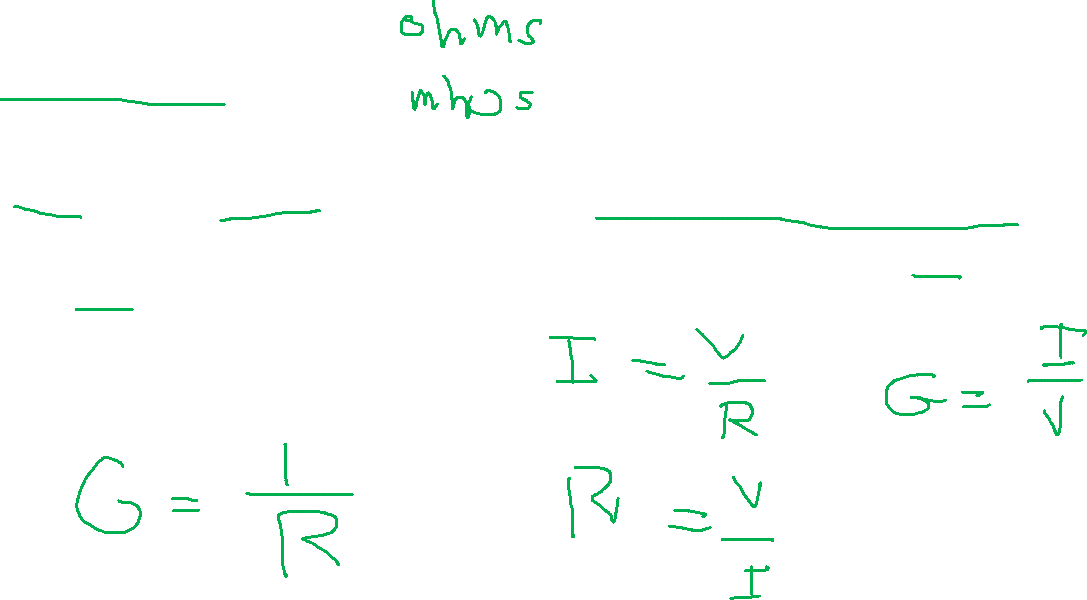 ohms
mhos
I = V/R
G = I/V
G = 1/R
R = V/I